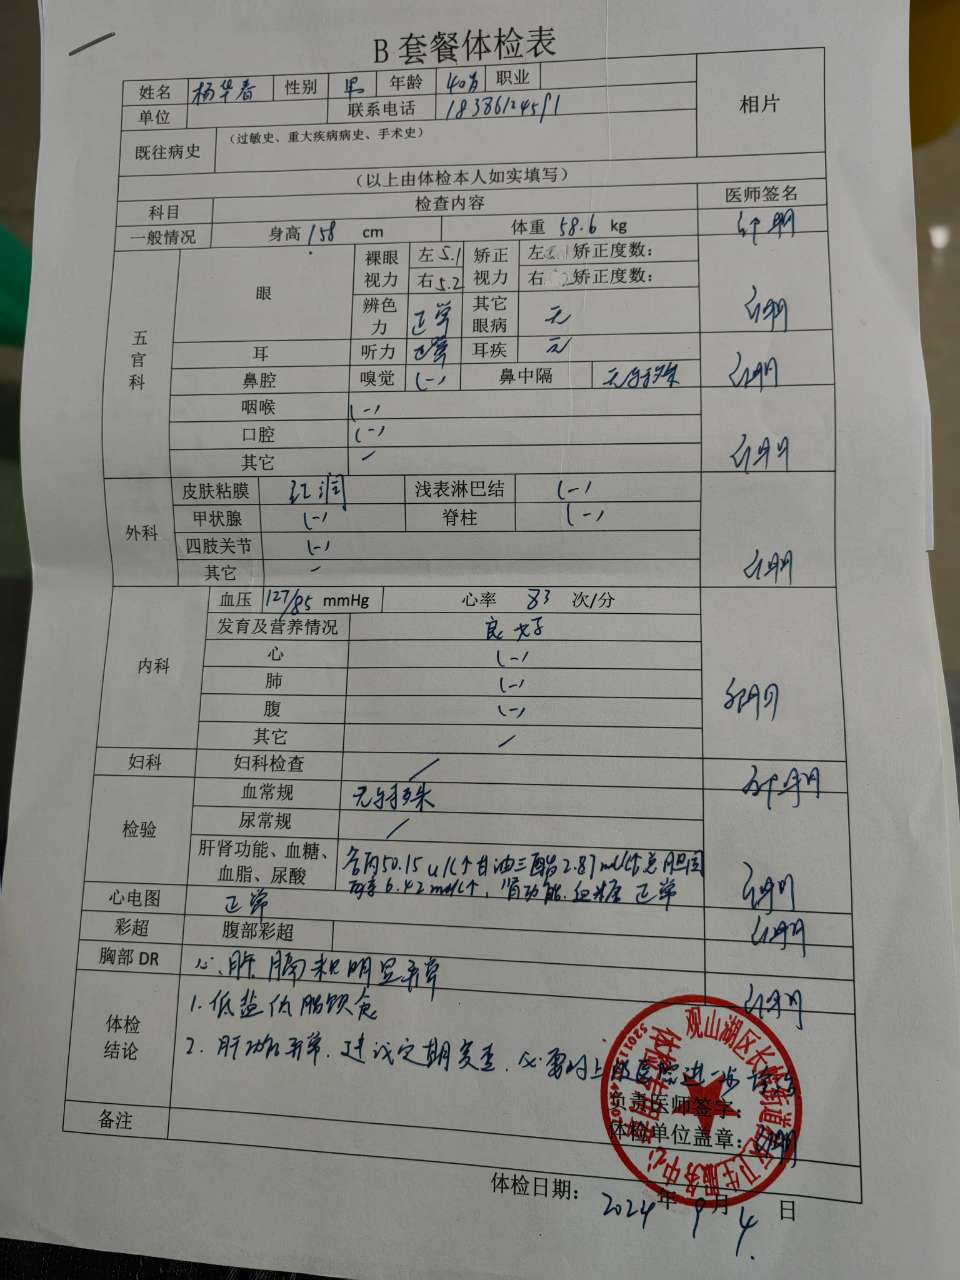 B 套餐体检表
姓名 杨华春 性别 男 年龄 40岁 职业
单位 联系电话 18386124591
相片
既往病史 (过敏史、重大疾病病史、手术史)
(以上由体检本人如实填写)
科目 检查内容 医师签名
一般情况 身高 158 cm 体重 58.6 kg
五官科 眼 裸眼视力 左 5.1 矫正视力 左 矫正度数:
右 5.2 右 矫正度数:
辨色力 正常 其它眼病 无
耳 听力 正常 耳疾 无
鼻腔 嗅觉 (-) 鼻中隔 无特殊
咽喉 (-)
口腔 (-)
其它 /
外科 皮肤粘膜 红润 浅表淋巴结 (-)
甲状腺 (-) 脊柱 (-)
四肢关节 (-)
其它 /
内科 血压 127/85 mmHg 心率 83 次/分
发育及营养情况 良好
心 (-)
肺 (-)
腹 (-)
其它 /
妇科 妇科检查 /
检验 血常规 无特殊
尿常规 /
肝肾功能、血糖、血脂、尿酸 谷丙50.15u/L↑甘油三酯2.87mmol/L↑总胆固
醇6.42mmol/L↑,肾功能.血糖 正常
心电图 正常
彩超 腹部彩超
胸部 DR 心、肺、膈未见明显异常
体检结论 1.低盐低脂饮食
2.肝功能异常.建议定期复查.必要时上级医院进一步诊治
负责医师签字:
体检单位盖章:
备注
观山湖区长岭街道社区卫生服务中心
体检专用章
体检日期: 2024年 9月 4日